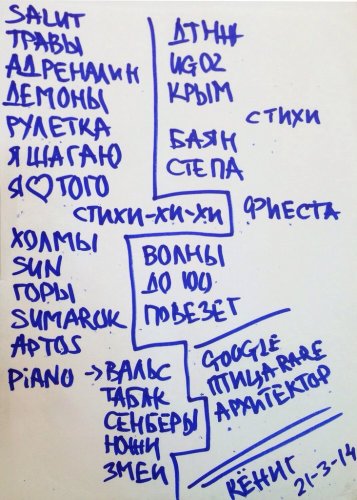 SALUT
ТРАВЫ
АДРЕНАЛИН
ДЕМОНЫ
РУЛЕТКА
Я ШАГАЮ
Я♡ТОГО
СТИХИ-ХИ-ХИ
ХОЛМЫ
SUN
ГОРЫ
SUMAROK
APTOS
PIANO → ВАЛЬС
ТАБАК
СЕНБЕРЫ
НОЖИ
ЗМЕИ
UGOZ
КРЫМ
СТИХИ
БАЯН
СТЕПА
ФИЕСТА
ВОЛНЫ
ДО 100
ПОВЕЗЕТ
GOOGLE
ПТИЦА-RARE
АРХИТЕКТОР
КЁНИГ
21-3-14